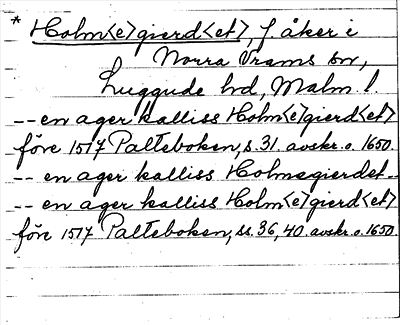 * Holm<e>gierd<et>, f åker i
Norra Vrams sn,
Luggude hd, Malm. l.
-- en ager kalliss Holm<e>gierd<et>
före 1517 Palteboken, s. 31. avskr. o. 1650.
-- en ager kalliss Holmegierdet --
-- en ager kalliss Holm<e>gierd<et>
före 1517 Palteboken, ss. 36, 40. avskr. o. 1650.